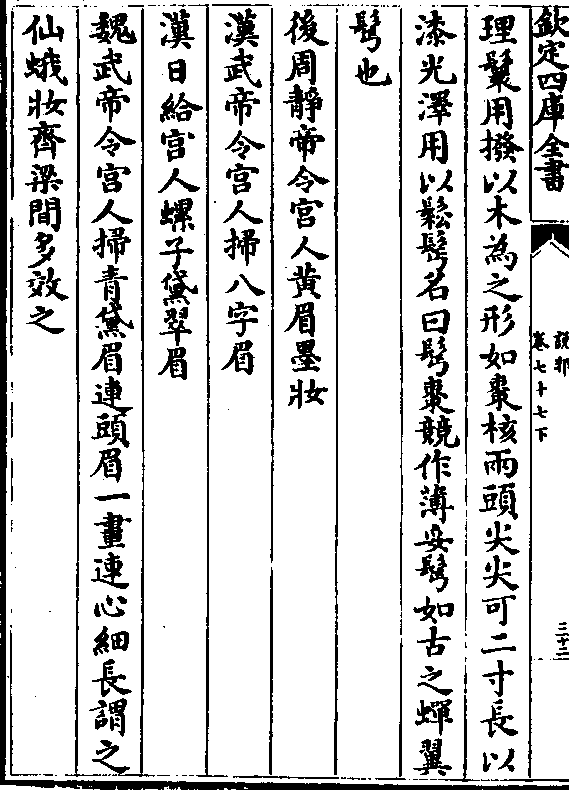 欽定四庫全書
說郛
卷七十七下
三十二
理鬢用撥以木為之形如棗核兩頭尖尖可二寸長以
漆光澤用以鬆鬢名曰鬢棗競作薄妥鬢如古之蟬翼
鬢也
後周靜帝令宮人黃眉墨妝
漢武帝令宮人掃八字眉
漢日給宮人螺子黛翠眉
魏武帝令宮人掃青黛眉連頭眉一畫連心細長謂之
仙蛾妝齊梁間多效之